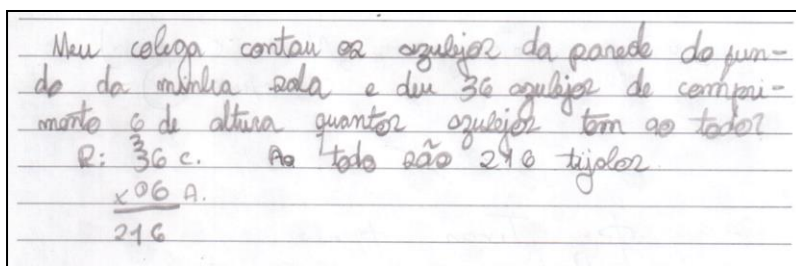 Meu colega contou os azulejos da parede do fun-
do da minha sala e deu 36 azulejos de compri-
mento 6 de altura quantos azulejos tem ao todo?
R: 36 c. Ao todo são 216 tijolos
3
x 06 A.
216